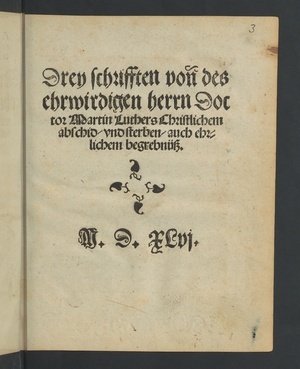 3
Drey schrifften von̄ des
ehrwirdigen herrn Doc
tor Martin Luthers Christlichem
abschid/ vnd sterben/ auch ehr⸗
lichem begrebnüß.
M. D. XLvj.